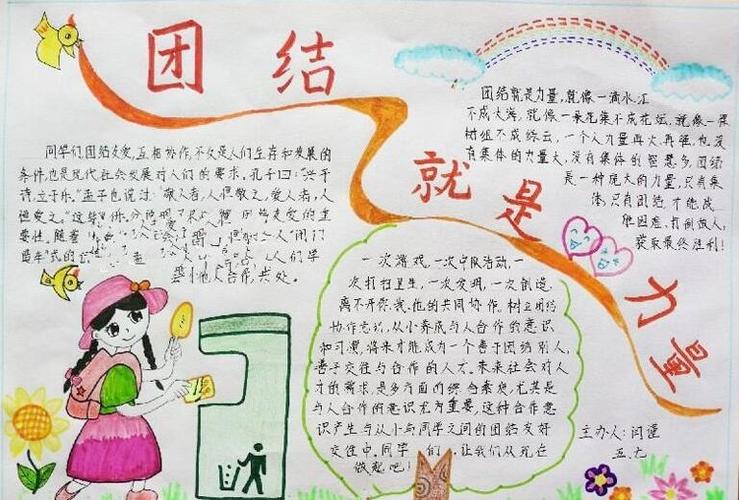 团结
就是
力量
同学们团结友爱,互相协作,不仅是人们生存和发展的
条件,也是现代社会发展对人们的要求。孔子曰:"兴于
诗,立于乐。"孟子也说过"敬人者,人恒敬之,爱人者,人
恒爱之。"这
友爱的重
要性。随着
人"闭门
造车"式的
人们学
会与他人合作,共处。
团结就是力量,就像一滴水汇
不成大海,就像一朵花集不成花坛,就像一棵
树组不成绿云,一个人力量再大,再强,也没
有集体的力量大,没有集体的智慧多。团结
是一种庞大的力量,只有集
体,只有团结才能战
胜困难,打倒敌人,
获取最终胜利!
一次游戏,一次少队活动,一
次打扫卫生,一次发明,一次创造,
离不开你、我、他的共同协作。树立团结
协作意识,从小养成与人合作的意识
和习惯,将来才能成为一个善于团结别人,
善于交往与合作的人才。未来社会对人
才的需求,是多方面的综合素质,尤其是
与人合作的意识尤为重要,这种合作意
识产生与从小与同学之间的团结友好
交往中。同学们,让我们从现在
做起吧!
主办人:闫谨
五.九